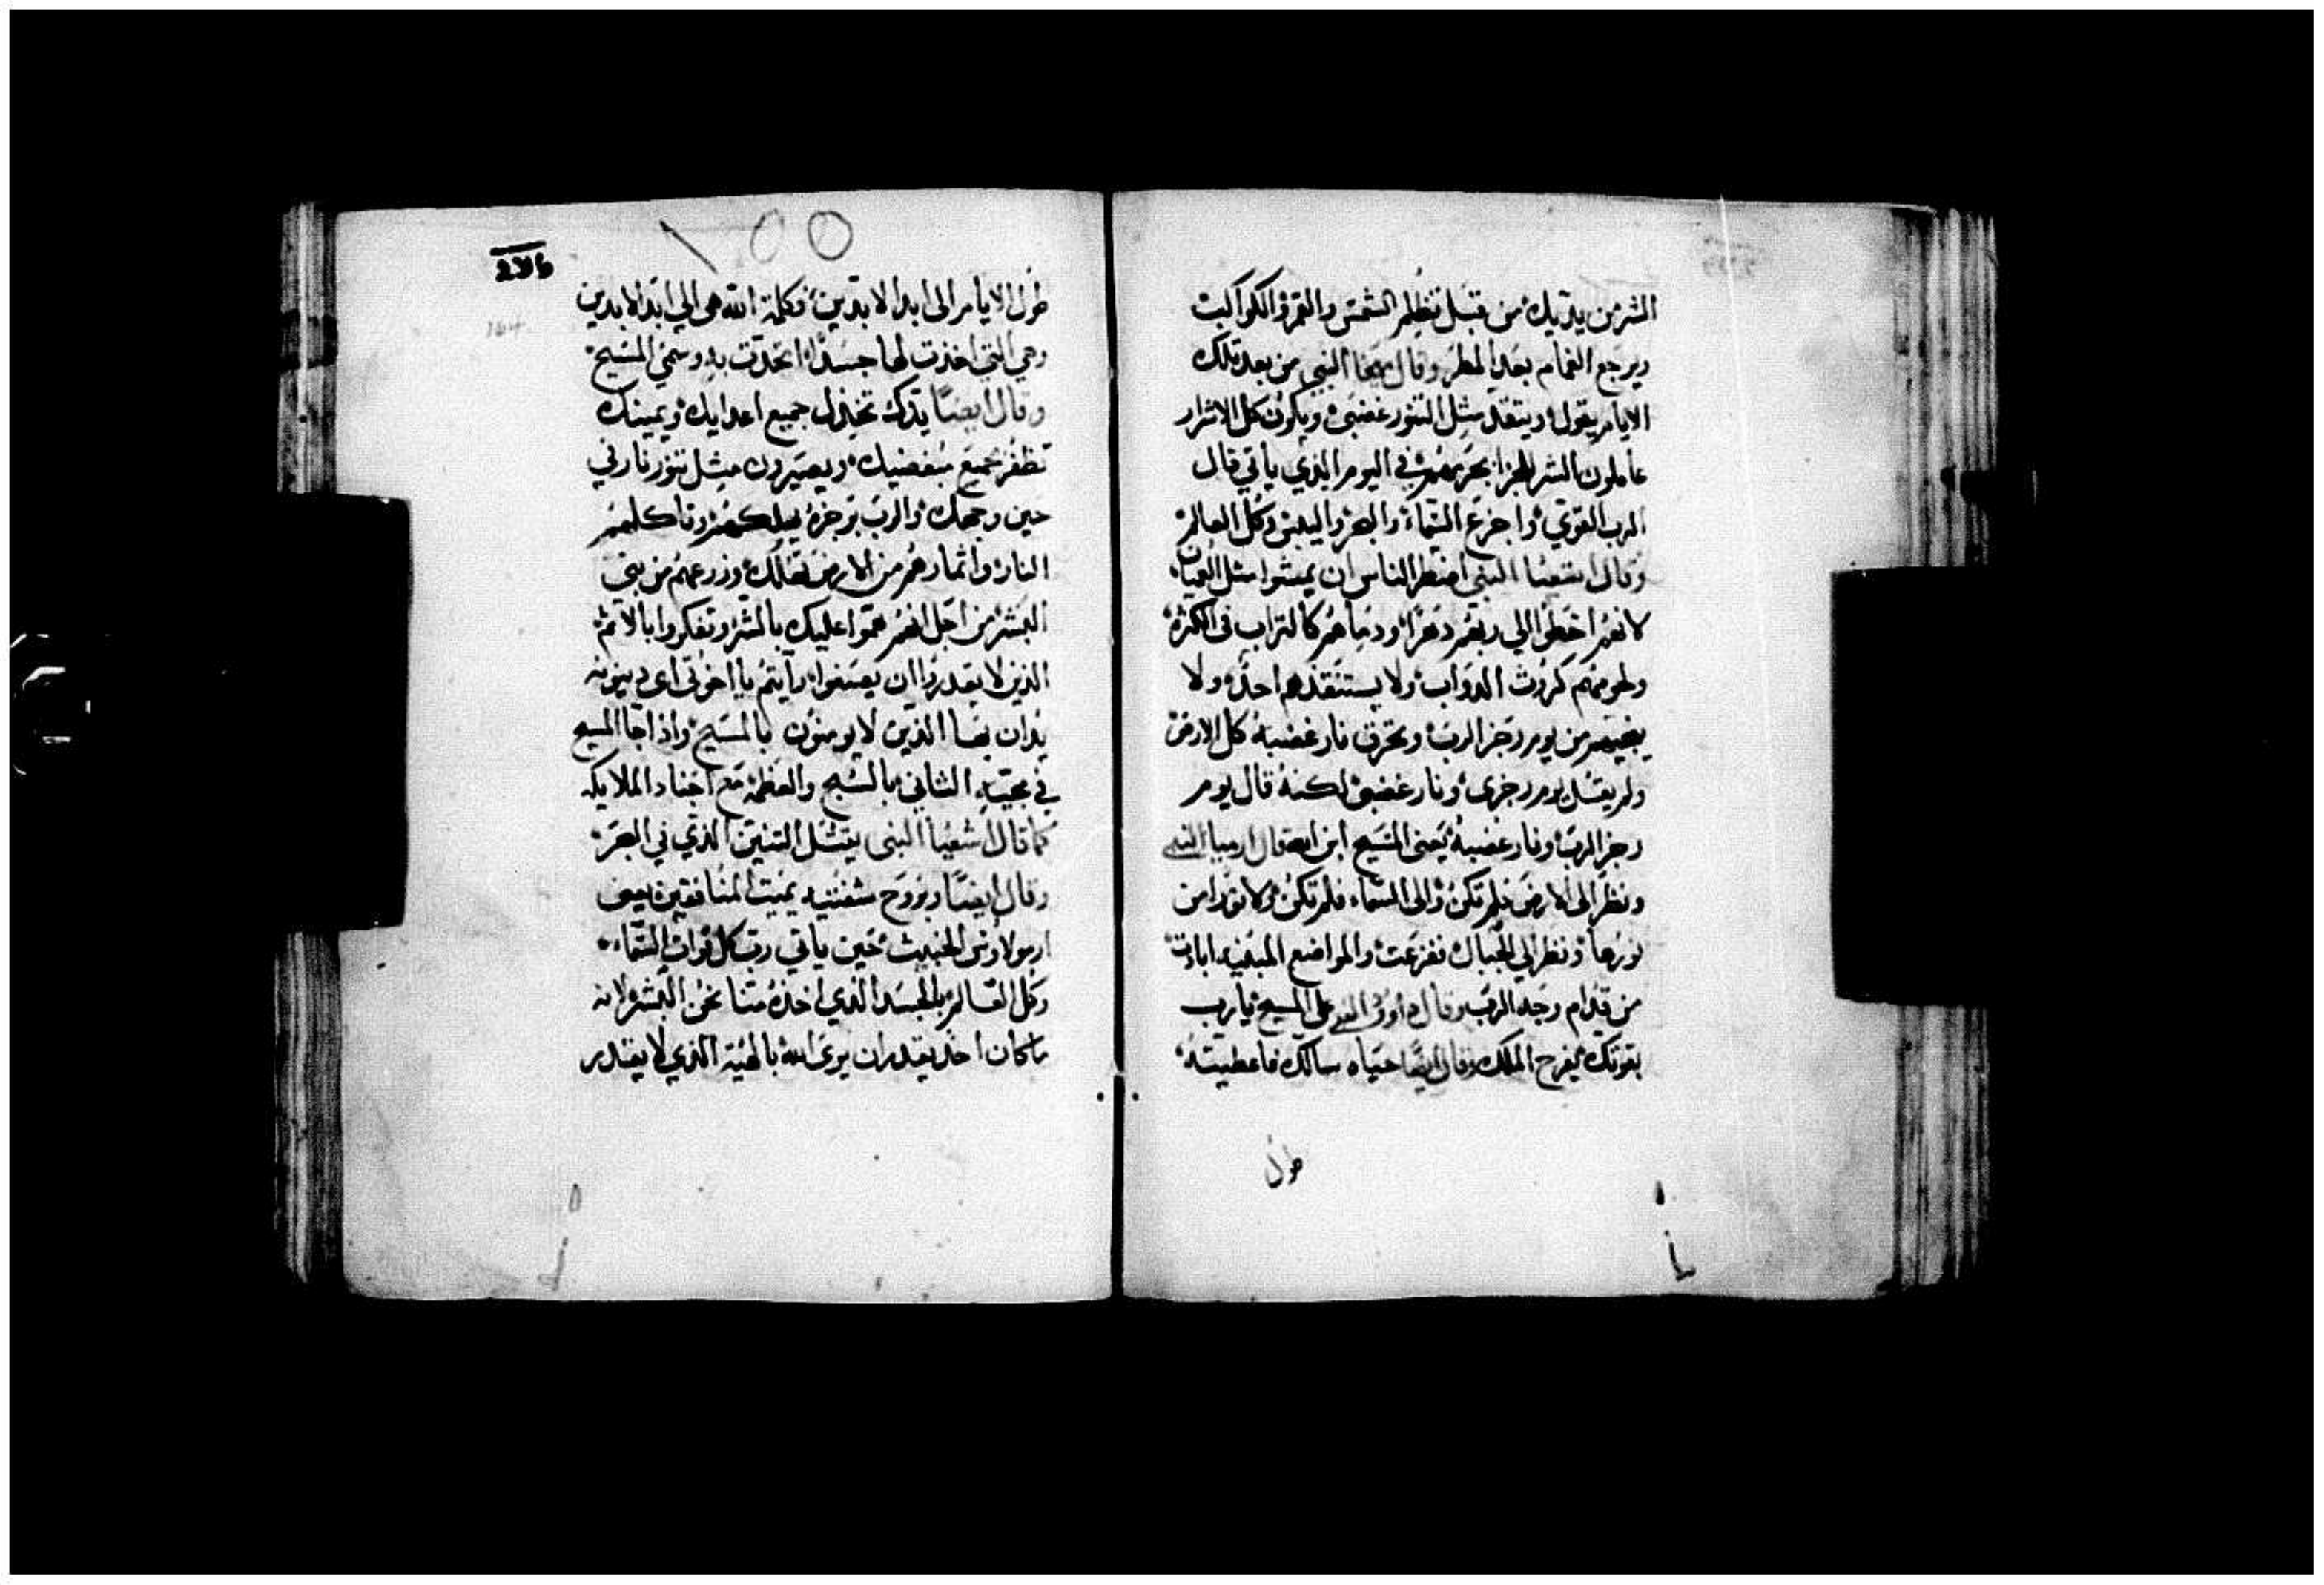 الشر من يديك من قبل تظلم الشمس والقمر والكواكب
ويرجع الغمام بعد المطر وقال النبي من بعد تلك
الايام يقول ويتقد مثل التنور غضبي ويكون كل الاشرار
عاملون الشر في اليوم الذي ياتي قال
الرب القوي واجزع السماء والبحر واليبس وكل العالم
وقال اشعيا النبي اضطر الناس ان يمشوا مثل العميان
لانهم اخطوا الي ربهم ودماهم كالتراب في الكثرة
ولحومهم كروث الدواب ولا يستنقذهم احد ولا
ينجيهم من يوم رجز الرب وتحرق نار غضبه كل الارض
ولم يقل يوم رجزي ونار غضبي لكنه قال يوم
رجز الرب ونار غضبه يعني المسيح ابن الله قال ارميا النبي
ونظر الى الارض فلم تكن والى السماء فلم تكن ولا نورا من
نورها ونظر الي الجبال ففزعت والمواضع المبنيه ابادت
من قدام وجه الرب وقال داوود النبي على المسيح يا رب
بقوتك يفرح الملك وقال ايضا حياه سالك فاعطيته
طول
١٥٥
طول الايام الى ابد الابدين وكلمة الله هي الي ابد الابدين
وهي التي اخذت لها جسدا اتحدت به وسمي المسيح
وقال ايضا يدك تخذل جميع اعدايك ويمينك
تظفر بجميع مبغضيك ويصيرون مثل تنور نار في
حين وجهك والرب برجزه يهلكهم وتاكلهم
النار واثمارهم من الارض تهلك وزرعهم من بني
البشر من اجل انهم هموا عليك بالشر وتفكروا بالاثم
الذين لا يقدروا ان رايتم يا اخوتي اي دينونه
يدان بها الذين لا يومنون بالمسيح واذا جا المسيح
في مجيته الثاني بالسبح والعظمة مع اجناد الملايكه
كما قال اشعيا النبي يقتل التنين الذي في البحر
وقال ايضا وبروح شفتيه يميت المنافقين يعني
ارمولاوس الخبيث حين ياتي رب كل قوات السماء
وكل العالم بالجسد الذي اخذه منا نحن البشر لانه
ما كان احد يقدر ان يرى الله بالهيته الذي لا يقدر